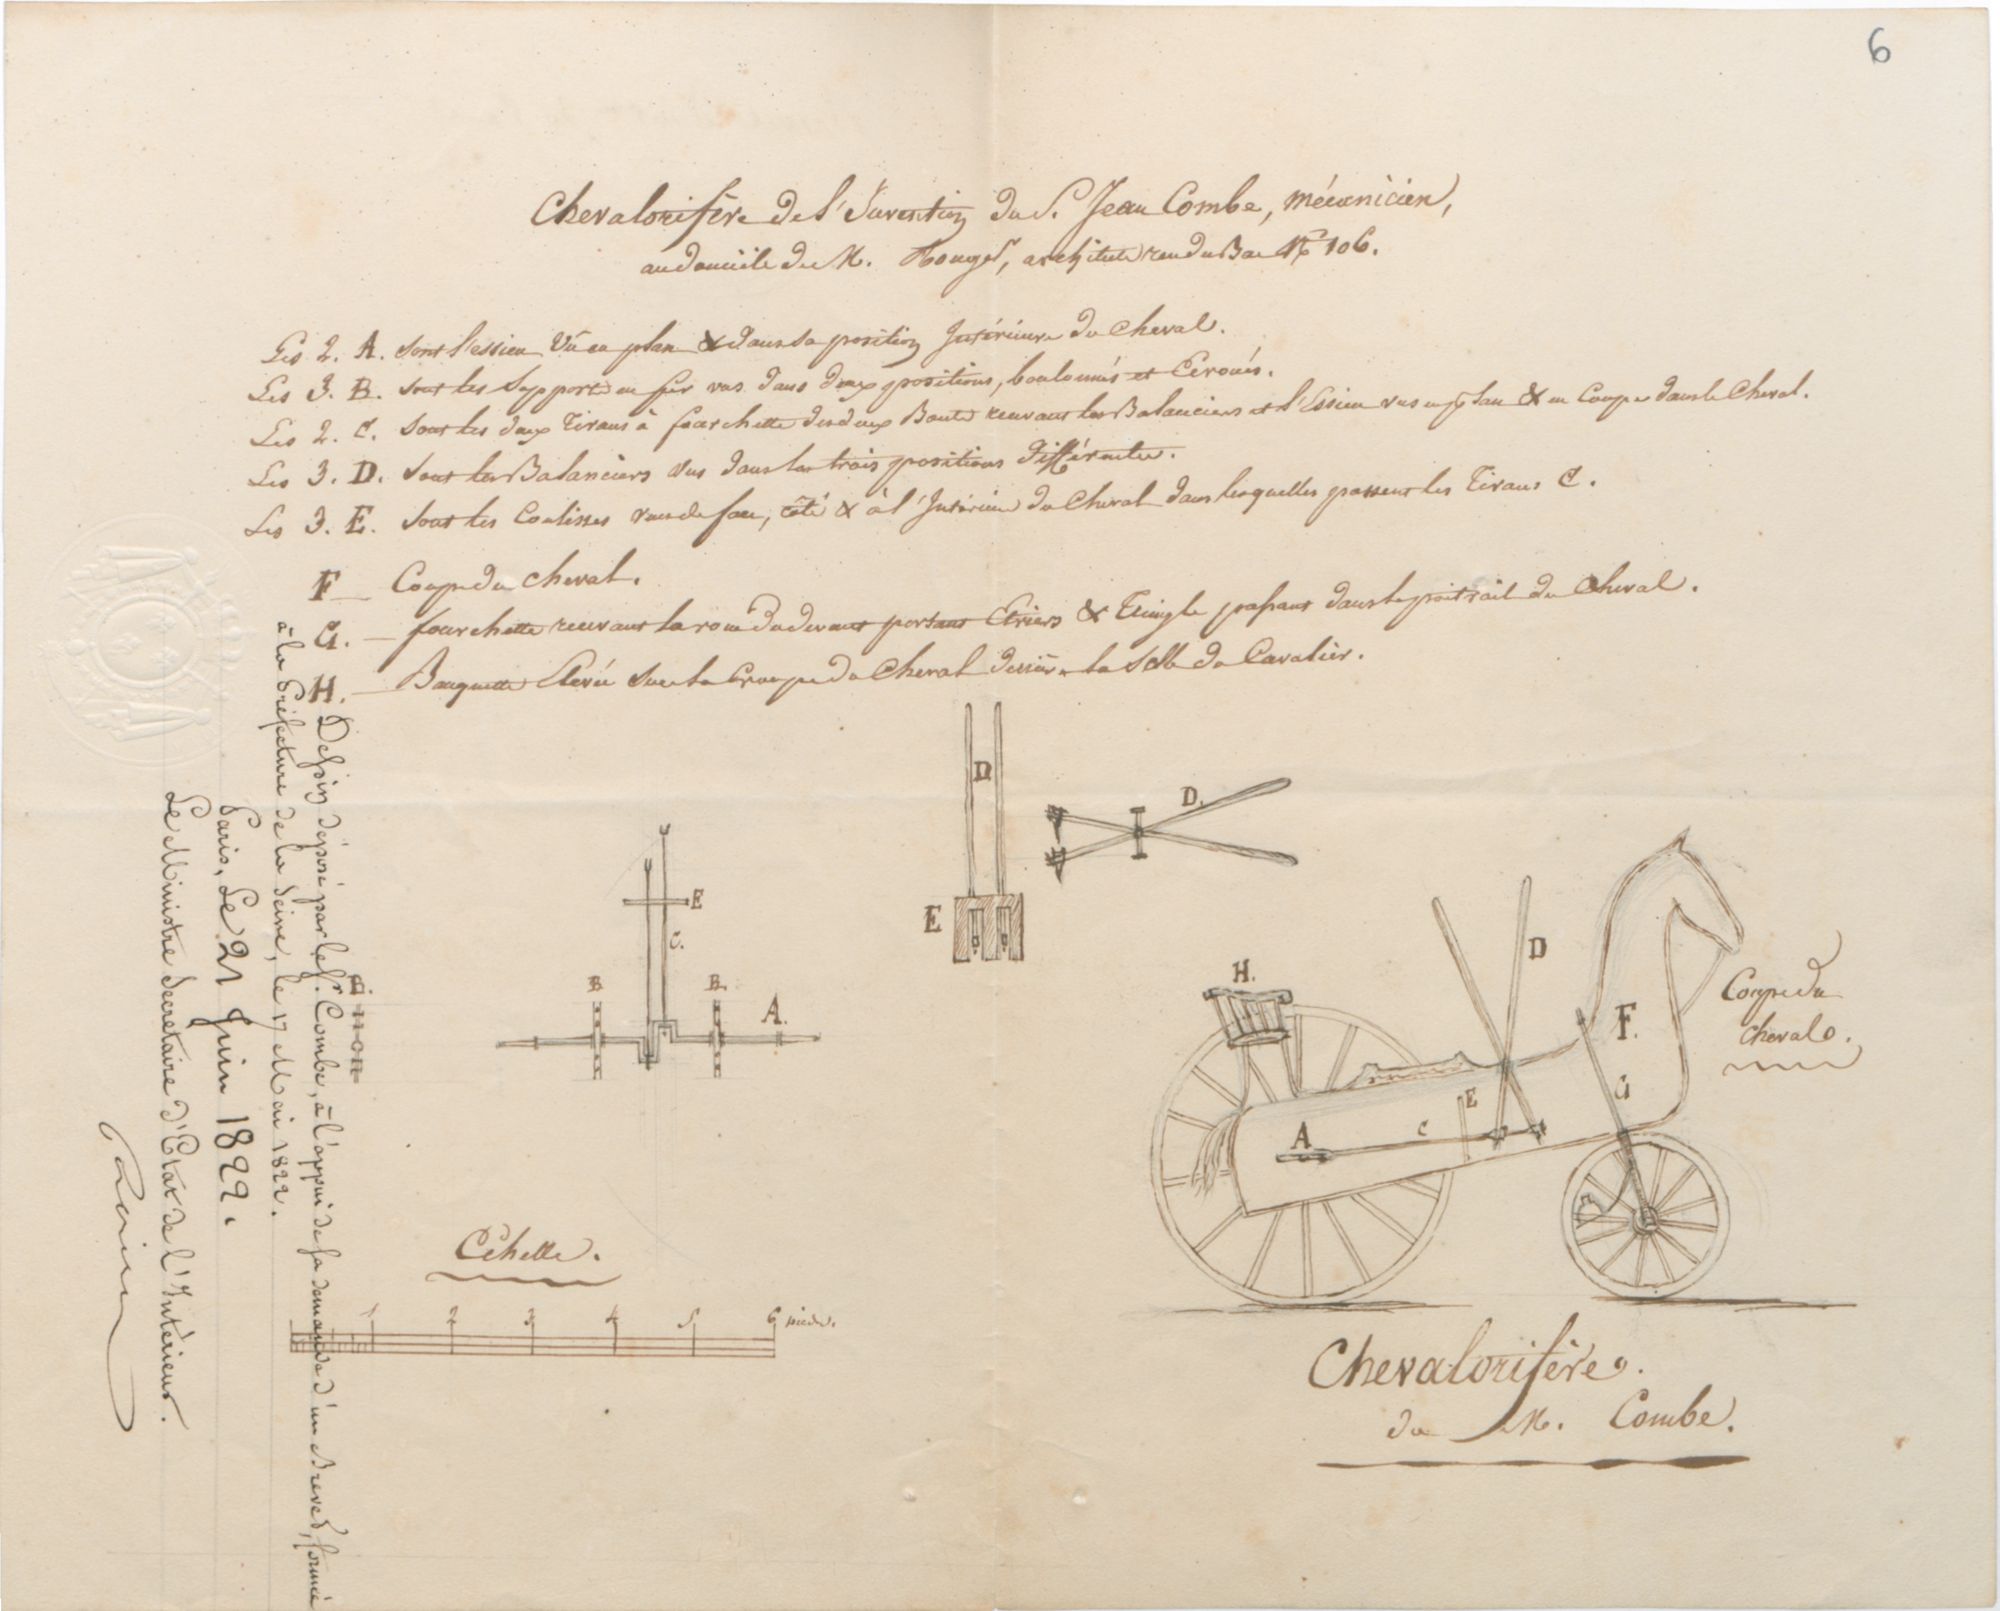 6
Chevalorifère de l'Invention du S. Jean Combe, mécanicien,
au domicile de M. Rouget, architecte rue du Bac N° 106.
Les 2. A. sont l'essieu Vû en plan & dans sa position Intérieure du Cheval.
Les 3. B. sont les Supports en fer vus dans deux positions, boulonnés et Ecroués.
Les 2. C. sont les deux Tirans à fourchette des deux Bouts recevant les Balanciers et l'Essieu vus en plan & en Coupe dans le Cheval.
Les 3. D. sont les Balanciers vus dans les trois positions différentes.
Les 3. E. sont les Coulisses vues de face, côté & à l'Intérieur du Cheval dans lesquelles passent les Tirans C.
F — Coupe du Cheval.
G. — fourchette recevant la roue du devant portant Etriers & Tringle passant dans le poitrail du Cheval.
H. — Banquette Elevée sur la Croupe du Cheval derrière la Selle du Cavalier.
Dessin déposé par le Sr. Combe, à l'appui de sa demande d'un Brevet, formée
à la Préfecture de la Seine, le 17 Mai 1822.
Paris, Le 21 Juin 1822.
Le Ministre Secrétaire d'Etat de l'Intérieur.
D
D.
E
E
C.
B
B
A.
B.
H.
D
F.
G
E
C
A
Coupe du
Cheval.
Echelle.
1 2 3 4 5 6 pieds.
Chevalorifère.
du M. Combe.